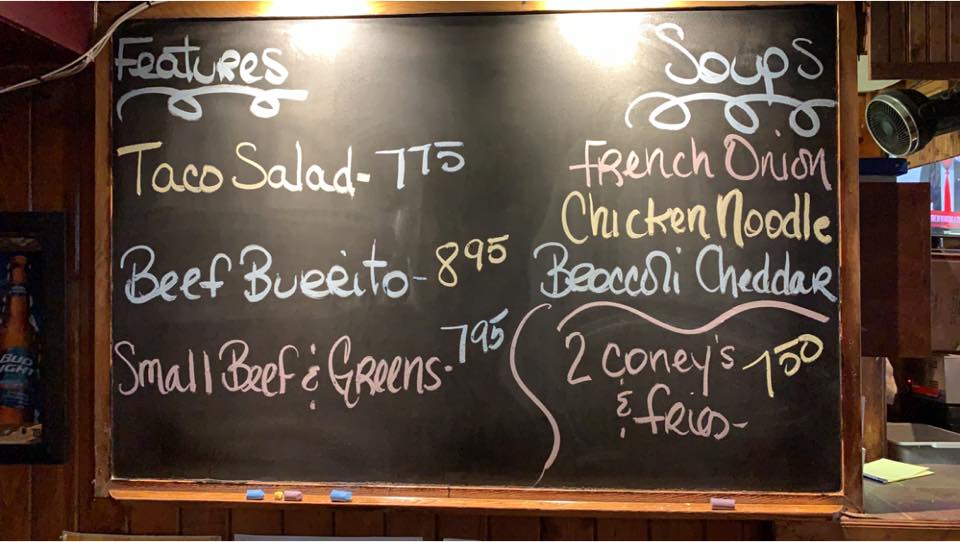 Features
Taco Salad- 775
Beef Burrito- 895
Small Beef & Greens- 795
Soups
French Onion
Chicken Noodle
Broccoli Cheddar
2 Coney's 750
& fries-
BUD
LIGHT